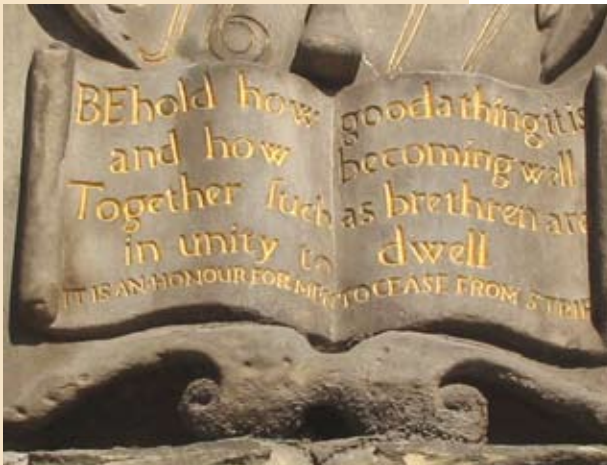 16 77
BEhold how good a thing it is
and how becoming well
Together ſuch as brethren are
in unity to dwell
IT IS AN·HONOUR FOR MEN TO CEASE FROM STRIF